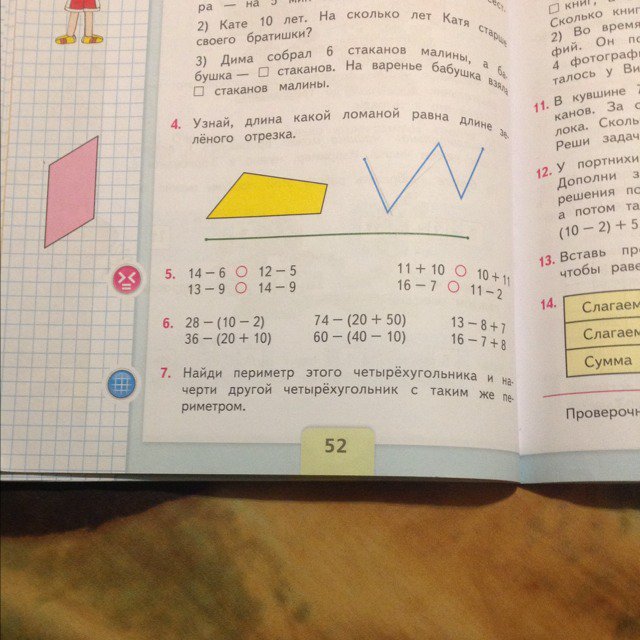 2) Кате 10 лет. На сколько лет Катя старше
своего братишки?
3) Дима собрал 6 стаканов малины, а ба-
бушка — □ стаканов. На варенье бабушка взяла
□ стаканов малины.
4. Узнай, длина какой ломаной равна длине зе-
лёного отрезка.
5. 14 − 6 ○ 12 − 5 11 + 10 ○ 10 + 11
13 − 9 ○ 14 − 9 16 − 7 ○ 11 − 2
6. 28 − (10 − 2) 74 − (20 + 50) 13 − 8 + 7
36 − (20 + 10) 60 − (40 − 10) 16 − 7 + 8
7. Найди периметр этого четырёхугольника и на-
черти другой четырёхугольник с таким же пе-
риметром.
52
□ книг,
Сколько книг
2) Во время
фий. Он по
4 фотографи
талось у Ви
11. В кувшине
канов. За
лока. Сколь
Реши задач
12. У портнихи
Дополни з
решения по
а потом та
(10 − 2) + 5
13. Вставь
чтобы раве
14. Слагаем
Слагаем
Сумма
Проверочн